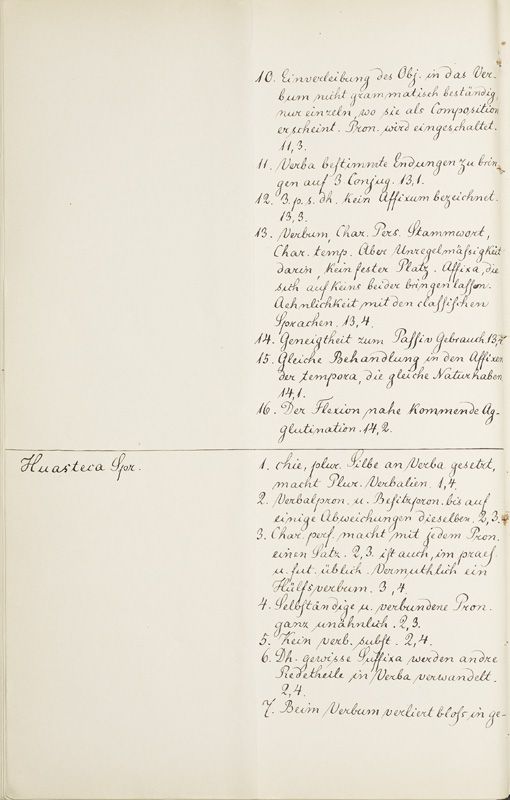 10. Einverleibung des Obj. in das Ver-
bum nicht grammatisch beständig,
nur einzeln, wo sie als Composition
erscheint. Pron. wird eingeschaltet.
11,3.
11. Verba beſtimmte Endungen zu brin-
gen auf 3 Conjug. 13,1.
12. 3. p. s. dh. kein Affixum bezeichnet.
13,3.
13. Verbum, Char. Pers. Stammwort,
Char. temp. Aber Unregelmäſsigkeit
darin, kein feſter Platz. Affixa, die
sich auf keins beider bringen laſſen.
Aehnlichkeit mit den claſſiſchen
Sprachen. 13,4.
14. Geneigtheit zum Paſſiv Gebrauch 13,4
15. Gleiche Behandlung in den Affixen
der tempora, die gleiche Natur haben
14,1.
16. Der Flexion nahe kommende Ag-
glutination. 14,2.
Huasteca Spr.
1. chie, plur. Silbe an Verba gesetzt,
macht Plur. Verbalien. 1,4.
2. Verbalpron. u. Beſitzpron. bis auf
einige Abweichungen dieselben. 2,3.
3. Char. perf. macht mit jedem Pron.
einen Satz. 2,3. iſt auch, im praeſ.
u. fut. üblich. Vermuthlich ein
Hülfsverbum. 3,4.
4. Selbſtändige u. verbundene Pron.
ganz unähnlich. 2,3.
5. Kein verb. subſt. 2,4.
6. Dh. gewisse Suffixa werden andre
Redetheile in Verba verwandelt.
2,4.
7. Beim Verbum verliert bloſs in ge-